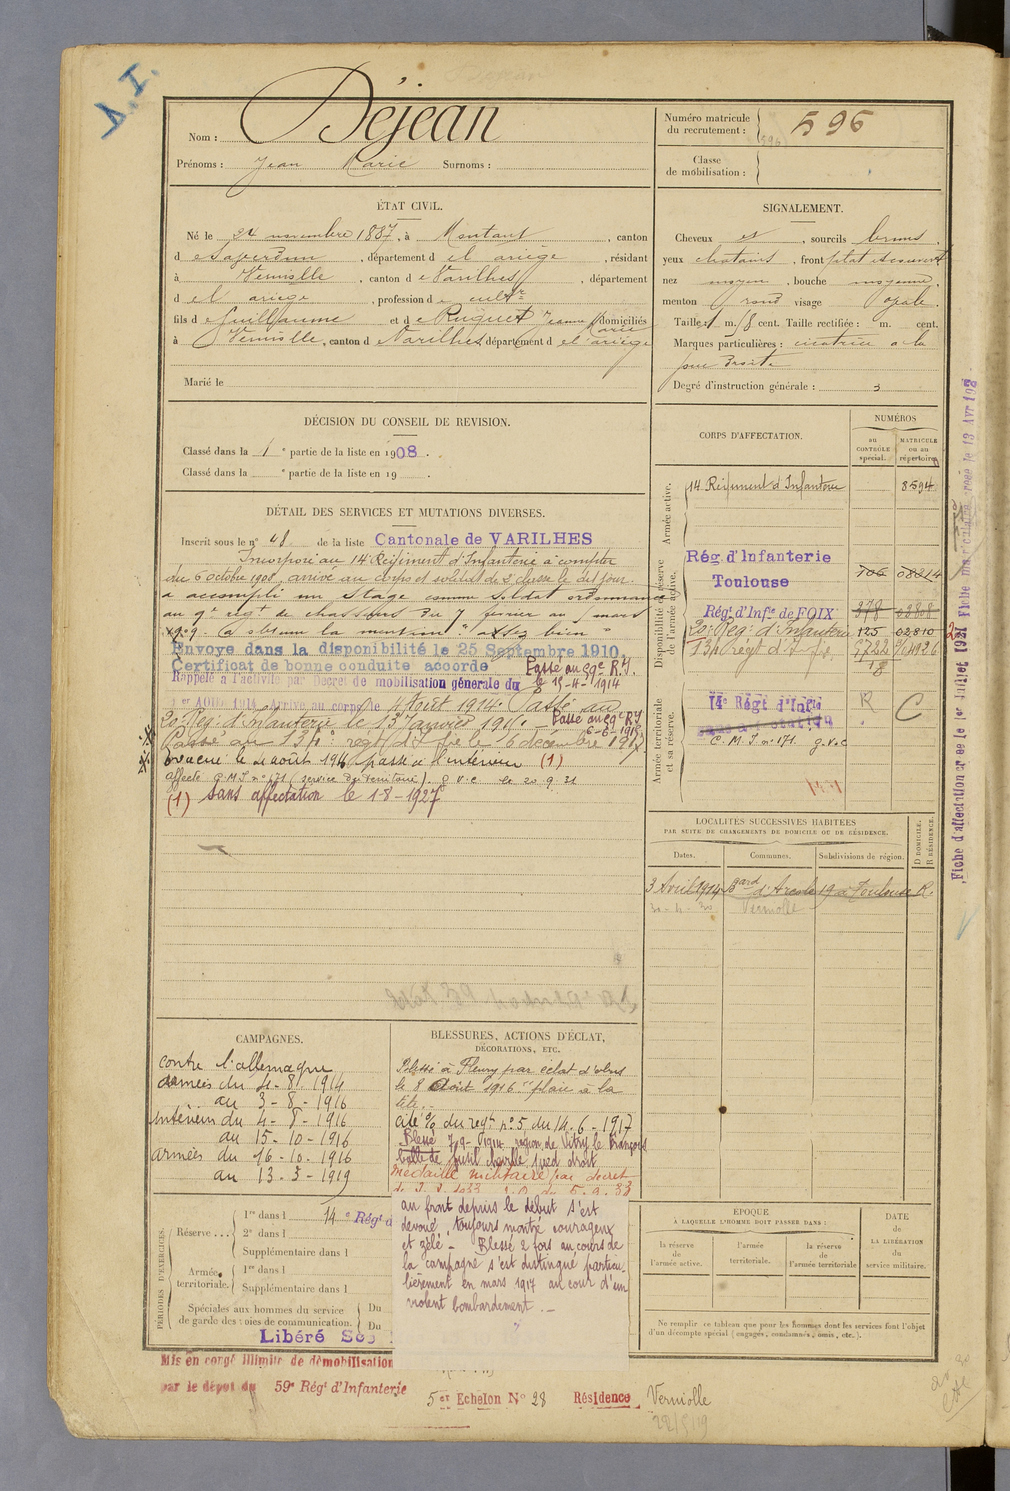 A. I.
Nom : Déjean
Prénoms : Jean Marie Surnoms :
Numéro matricule du recrutement : 596
Classe de mobilisation :
ÉTAT CIVIL.
Né le 24 novembre 1887, à Montaut, canton
de Saverdun, département de l'ariège, résidant
à Verniolle, canton de Varilhes, département
de l'ariège, profession de cultr
fils de Guillaume et de Ruquet Jeanne Marie domiciliés
à Verniolle, canton de Varilhes, département de l'ariège
Marié le
SIGNALEMENT.
Cheveux et, sourcils bruns.
yeux chatains, front plat et couvert
nez moyen, bouche moyenne,
menton rond visage ovale.
Taille : 1 m. cent. Taille rectifiée : m. cent.
Marques particulières : cicatrice a la
joue droite
Degré d'instruction générale : 3
DÉCISION DU CONSEIL DE REVISION.
Classé dans la 1e partie de la liste en 1908.
Classé dans la e partie de la liste en 19 .
CORPS D'AFFECTATION.
NUMÉROS
au CONTRÔLE spécial.
MATRICULE ou au répertoire
Armée active.
14 Régiment d'Infanterie 8594
Disponibilité et réserve de l'armée active.
Rég. d'Infanterie
Toulouse 106 08814
Régt d'Infie de FOIX 378 03808
20e Reg: d'Infanterie 125 02810
Armée territoriale et sa réserve.
14e Régt d'Infie
sans affectation
C. M. I. n° 171. g.v.c
R C
DÉTAIL DES SERVICES ET MUTATIONS DIVERSES.
Inscrit sous le n° 48 de la liste Cantonale de VARILHES
Incorporé au 14e Régiment d'Infanterie à compter
du 6 octobre 1908, arrivé au corps et soldat de 2e classe le dit jour.
a accompli un stage comme soldat ordonnance
au 9e régt de chasseurs du 7 février au mars
1909. a obtenu la mention "assez bien"
Envoyé dans la disponibilité le 25 Septembre 1910.
Certificat de bonne conduite accordé Passé au 59e R.I.
le 15-4-1914
Rappelé à l'activité par Décret de mobilisation générale du
1er AOUT 1914. Arrivé au corps le 4 Août 1914. Passé au
20e Reg: d'Infanterie le 13 Janvier 1915.
Passé au 59e RI
6-6-1915
Passé au 131e régt d'I le 6 décembre 1917
évacué le 4 août 1916 passé à l'intérieur (1)
affecté C.M.I. n° 171 (service du territoire). G.V.C. le 20.9.21
(1) sans affectation le 1-8-1927
Fiche d'affectation
LOCALITÉS SUCCESSIVES HABITÉES
PAR SUITE DE CHANGEMENTS DE DOMICILE OU DE RÉSIDENCE.
Dates. Communes. Subdivisions de région. D DOMICILE. R RÉSIDENCE.
3 Avril 1914 Bard d'Arcole 19 à Toulouse R.
Verniolle
CAMPAGNES.
contre l'allemagne
armées du 4-8-1914
au 3-8-1916
Intérieur du 4-8-1916
au 15-10-1916
armées du 16-10-1916
au 13-3-1919
BLESSURES, ACTIONS D'ÉCLAT,
DÉCORATIONS, ETC.
Blessé à Fleury par éclat d'obus
le 8 Août 1916 "plaie à la
tête.-
cité % du regt n° 5 du 14-6-1917
Blessé région de Vitry le François
balle de fusil cheville pied droit
Médaille militaire par décret
au front depuis le début s'est
dévoué, toujours montré courageux
et zélé - Blessé 2 fois au cours de
la campagne s'est distingué particu-
lièrement en mars 1917 au cour d'un
violent bombardement. -
PÉRIODES D'EXERCICES
Réserve... 1re dans l 14e Régt d
2e dans l
Supplémentaire dans l
Armée territoriale. 1re dans l
Supplémentaire dans l
Spéciales aux hommes du service de garde des voies de communication. Du
Du
Libéré
ÉPOQUE
À LAQUELLE L'HOMME DOIT PASSER DANS :
la réserve de l'armée active.
l'armée territoriale.
la réserve de l'armée territoriale
DATE de LA LIBÉRATION du service militaire.
Ne remplir ce tableau que pour les hommes dont les services font l'objet
d'un décompte spécial (engagés, condamnés, omis, etc.).
Mis en congé illimité de démobilisation
par le dépôt du 59e Régt d'Infanterie
5er Echelon N° 28 Résidence Verniolle